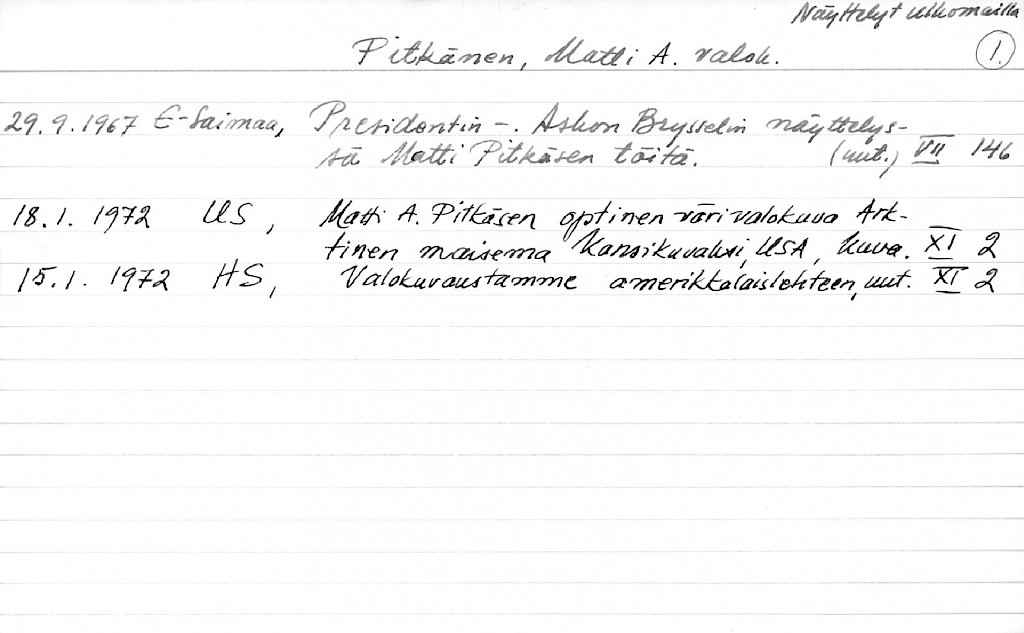 Näyttelyt ulkomailla
Pitkänen, Matti A. valok. 1.
29.9.1967 E-Saimaa, Presidentin -. Askon Brysselin näyttelys-
sä Matti Pitkäsen töitä. (uut.) VII 146
18.1. 1972 US, Matti A. Pitkäsen optinen värivalokuva Ark-
tinen maisema kansikuvaksi, USA, kuva. XI 2
15.1. 1972 HS, Valokuvaustamme amerikkalaislehteen, uut. XI 2